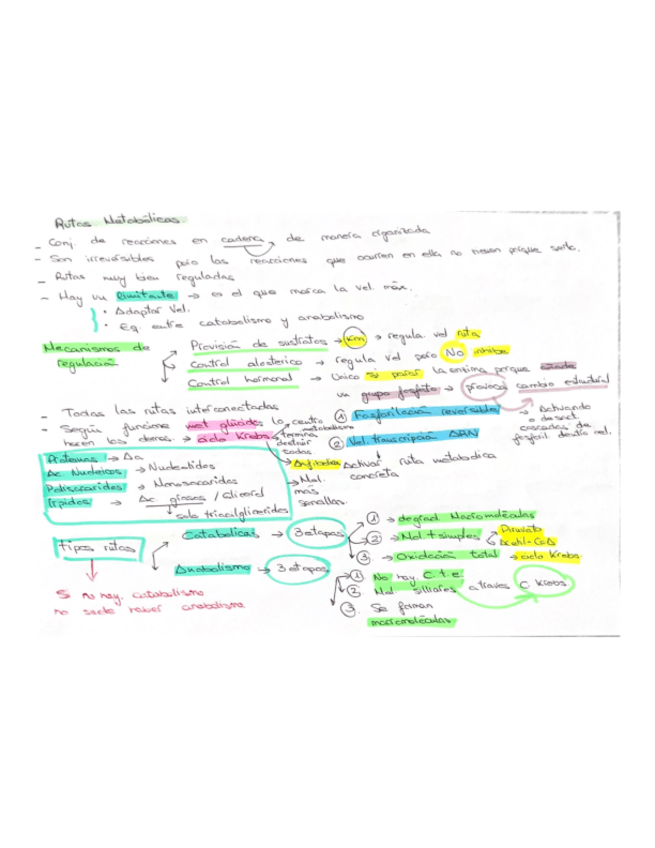 Rutas Metabólicas.
- Conj. de reacciones en cadena, de manera organizada
- Son irreversibles pero las reacciones que ocurren en ella no tienen porque serlo.
- Rutas muy bien reguladas
- Hay un limitante → es el que marca la vel. máx.
• Adaptar vel.
• Eq. entre catabolismo y anabolismo
Mecanismos de regulación
Provisión de sustratos → Km → regula vel ruta
Control alosterico → regula vel pero No
Control hormonal → Único si parar la enzima porque
un grupo fosfato → provoca cambio estructural
- Todas las rutas interconectadas
- Según funcione met glúcidos lo
hacen los demás. → ciclo Krebs
centro metabolismo
termina
① Fosforilación reversible → Activando o desact. cascadas de
② Vel. transcripción ADN
↓
Activar ruta metabólica concreta
→ Mol. más sencillas.
Proteínas → Aa
Ac. Nucleicos → Nucleotidos
Polisacaridos → Monosacaridos
Lípidos → Ac. grasos / Glicerol
↓ solo triacilgliceridos
Tipos rutas
Catabólicas → 3 etapas
① → degrad. Macromoléculas
② → Mol + simples Piruvato Acetil-CoA
③ → Oxidación total → ciclo Krebs
Anabolismo → 3 etapas
① No hay. C.t.e.
② Mol. a traves C. Krebs
③. Se forman macromoléculas
Si no hay. catabolismo
no suele haber anabolismo